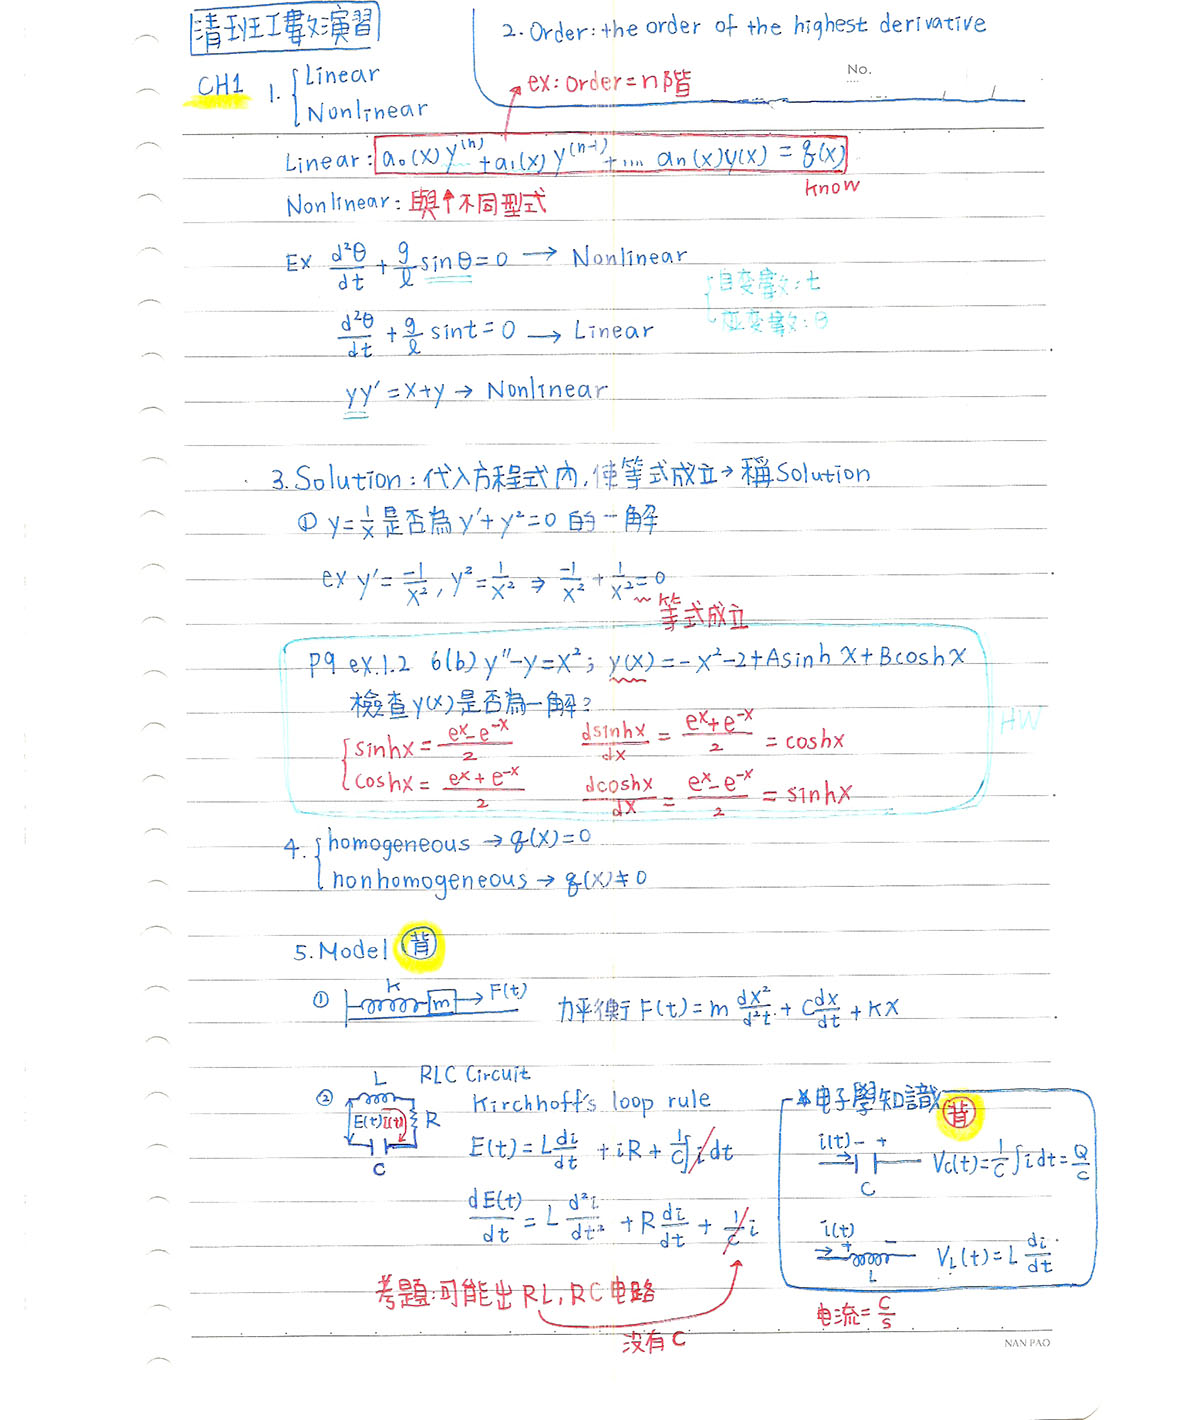 清班工數演習
2. Order: the order of the highest derivative
No.
CH1 1. { Linear
Nonlinear
ex: order = n階
Linear: a₀(x) y⁽ⁿ⁾ + a₁(x) y⁽ⁿ⁻¹⁾ + .... aₙ(x)y(x) = q(x)
know
Nonlinear: 與↑不同型式
Ex d²θ/dt + g/l sinθ = 0 → Nonlinear
自变數: t
应变數: θ
d²θ/dt + g/l sint = 0 → Linear
yy' = x+y → Nonlinear
3. Solution: 代入方程式內, 使等式成立 → 稱Solution
① y = 1/x 是否為 y'+y²=0 的一解
ex y' = -1/x², y² = 1/x² ⇒ -1/x² + 1/x² = 0
等式成立
P9 ex.1.2 6(b) y''-y=x²; y(x) = -x²-2+Asinh x+Bcosh x
檢查y(x)是否為一解?
HW
sinhx = (eˣ-e⁻ˣ)/2 dsinhx/dx = (eˣ+e⁻ˣ)/2 = coshx
coshx = (eˣ+e⁻ˣ)/2 dcoshx/dx = (eˣ-e⁻ˣ)/2 = sinhx
4. { homogeneous → q(x)=0
nonhomogeneous → q(x)≠0
5. Model 背
① K m F(t) 力平衡 F(t) = m dx²/d²t + C dx/dt + Kx
② L RLC Circuit
E(t) i(t) R
C
Kirchhoff's loop rule
E(t) = L di/dt + iR + 1/C ∫i dt
dE(t)/dt = L d²i/dt² + R di/dt + 1/C i
考題:可能出RL, RC电路
沒有C
*电子學知識 背
i(t) - +
C
Vc(t) = 1/C ∫i dt = Q/C
i(t)
+ -
L
V_L(t) = L di/dt
电流 = C/s
NAN PAO